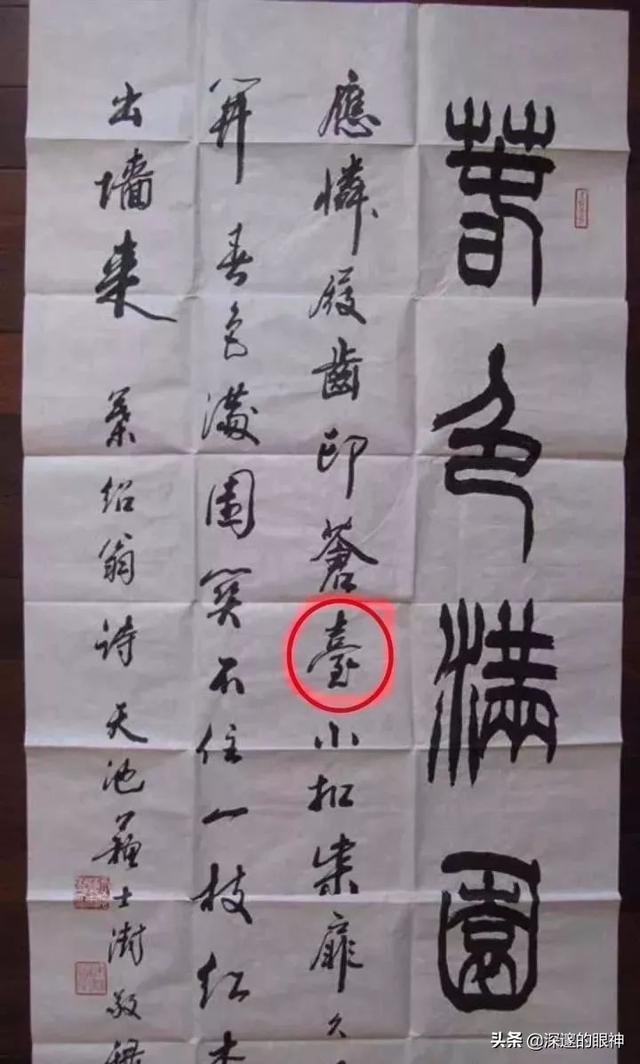 春色滿園
應憐屐齒印蒼臺小扣柴扉久
開春色滿園關不住一枝紅杏
出墻來 葉紹翁詩天池蘇士澍敬錄
头条 @深邃的眼神